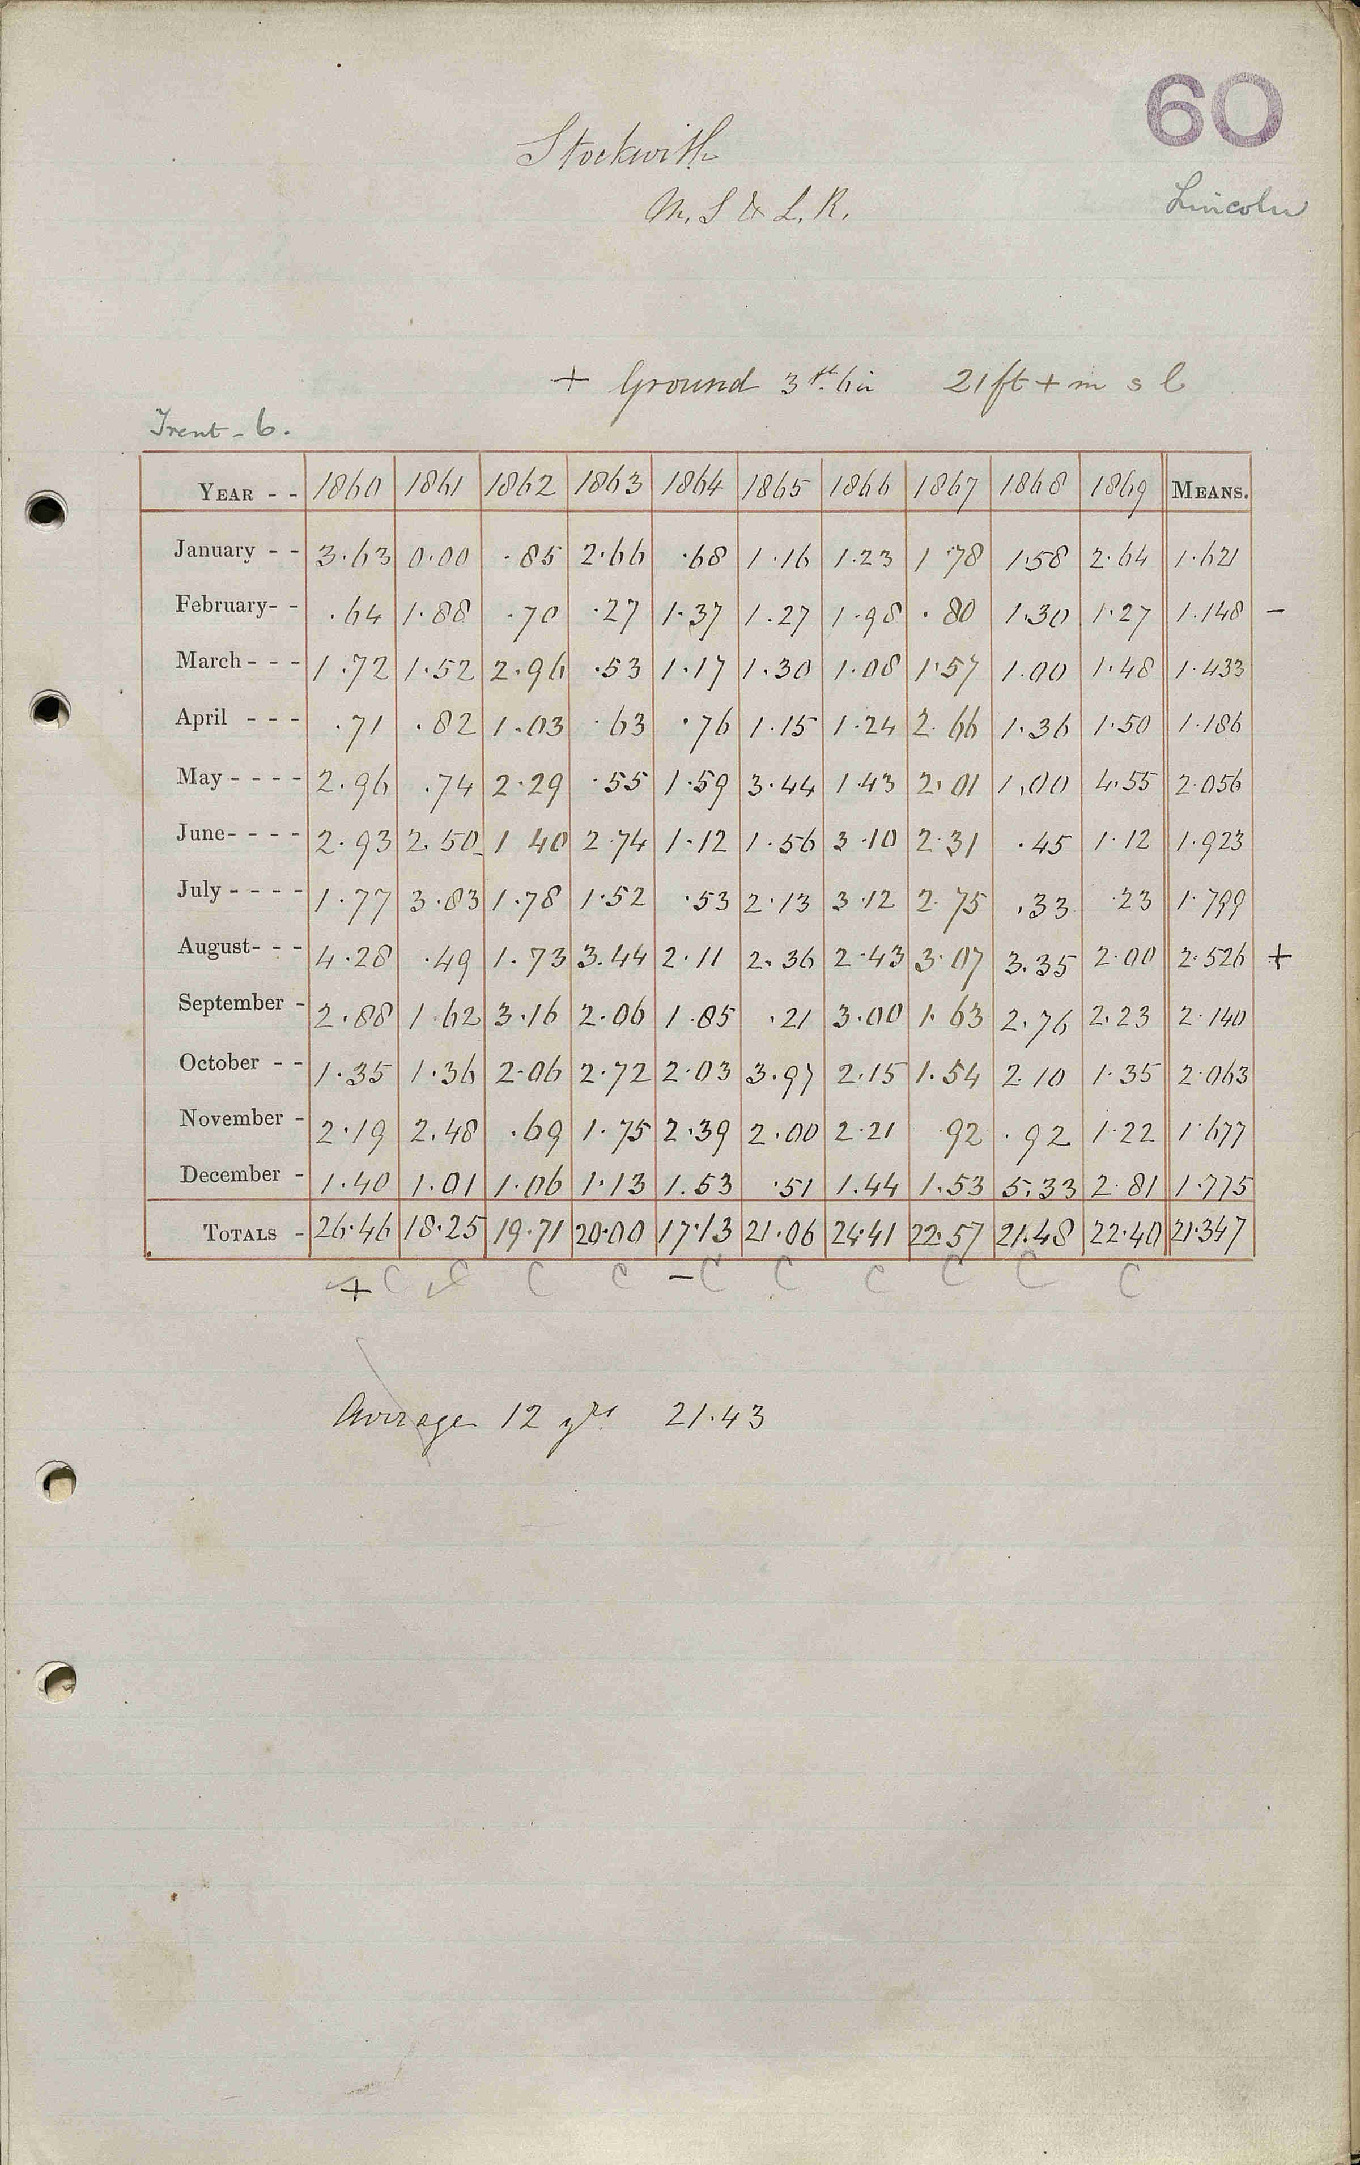 60
Stockwith
Lincoln
M. S & L. R.
+ Ground 3 ft. 6 in 21 ft + m s l
Trent - 6.
YEAR - - 1860 1861 1862 1863 1864 1865 1866 1867 1868 1869 MEANS.
January - - 3.63 0.00 .85 2.66 .68 1.16 1.23 1.78 1.58 2.64 1.621
February- - .64 1.88 .70 .27 1.37 1.27 1.98 .80 1.30 1.27 1.148 -
March - - - 1.72 1.52 2.96 .53 1.17 1.30 1.08 1.57 1.00 1.48 1.433
April - - - .71 .82 1.03 .63 .76 1.15 1.24 2.66 1.36 1.50 1.186
May - - - - 2.96 .74 2.29 .55 1.59 3.44 1.43 2.01 1.00 4.55 2.056
June- - - - 2.93 2.50 1.40 2.74 1.12 1.56 3.10 2.31 .45 1.12 1.923
July - - - - 1.77 3.83 1.78 1.52 .53 2.13 3.12 2.75 .33 .23 1.799
August- - - 4.28 .49 1.73 3.44 2.11 2.36 2.43 3.07 3.35 2.00 2.526 +
September - 2.88 1.62 3.16 2.06 1.85 .21 3.00 1.63 2.76 2.23 2.140
October - - 1.35 1.36 2.06 2.72 2.03 3.97 2.15 1.54 2.10 1.35 2.063
November - 2.19 2.48 .69 1.75 2.39 2.00 2.21 .92 .92 1.22 1.677
December - 1.40 1.01 1.06 1.13 1.53 .51 1.44 1.53 5.33 2.81 1.775
TOTALS - 26.46 18.25 19.71 20.00 17.13 21.06 24.41 22.57 21.48 22.40 21.347
+ C C C C - C C C C C C
Average 12 yrs 21.43